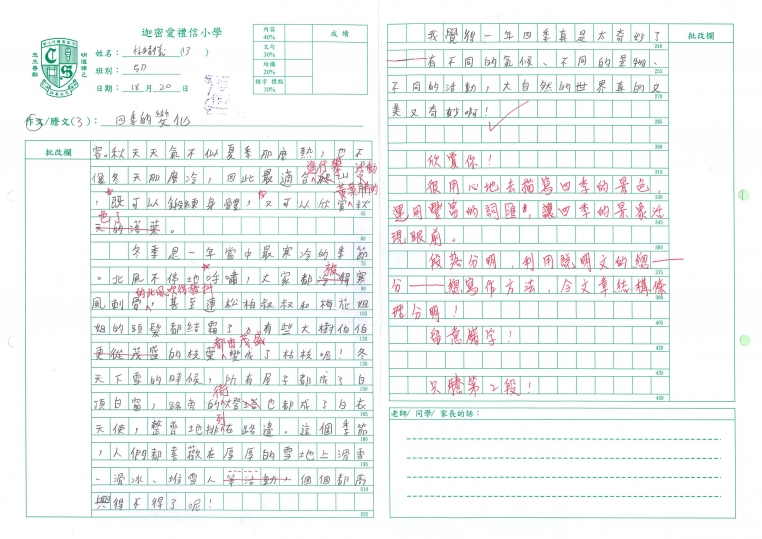 迦密愛禮信小學
姓名：
班別：5D
日期：18 月 20 日
作文/謄文(3)： 四季的變化
內容 40%
文句 30%
結構 20%
錯字 標點 10%
成績
批改欄
容。秋天天氣不似夏季那麼熱，也不
進行攀 活動
像冬天那麼冷，因此最適合
黃葉
，既可以鍛鍊身體，又可以欣賞秋
色了
天的落葉。
65
冬季是一年當中最寒冷的季節
75
。北風不停地呼嘯，大家都冷得寒
被
的北風吹得發抖
風刺骨，甚至連松柏叔叔和梅花姐
105
姐的頭髮都結霜了，有些大樹伯伯
都由茂盛
的枝葉變成了枯枝呢！冬
天下雪的時候，所有屋子都成了白
150
街
頂白窗，路旁的燈也都成了白衣
列
天使，整齊地排在路邊。這個季節
180
，人們都喜歡在厚厚的雪地上滑雪
195
、滑冰、堆雪人等活動，個個都高
210
興得不得了呢！
255
我覺得一年四季真是太奇妙了
240
有不同的氣候、不同的景物、
不同的活動，大自然的世界真的又
270
美又奇妙啊！
欣賞你！
很用心地去描寫四季的景色，
運用豐富的詞語，讓四季的景象活
現眼前。
360
段落分明，利用說明文的總——
375
分——總寫作方法，令文章結構條
理分明！
留意錯字！
435
只謄第2段！
450
批改欄
老師/ 同學/ 家長的話：